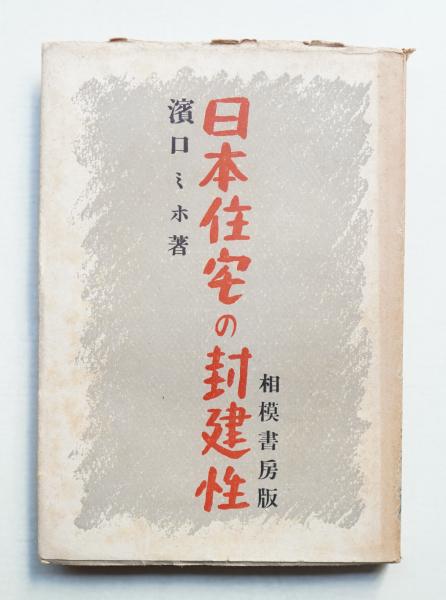 日本住宅の封建性
濱口ミホ著
相模書房版